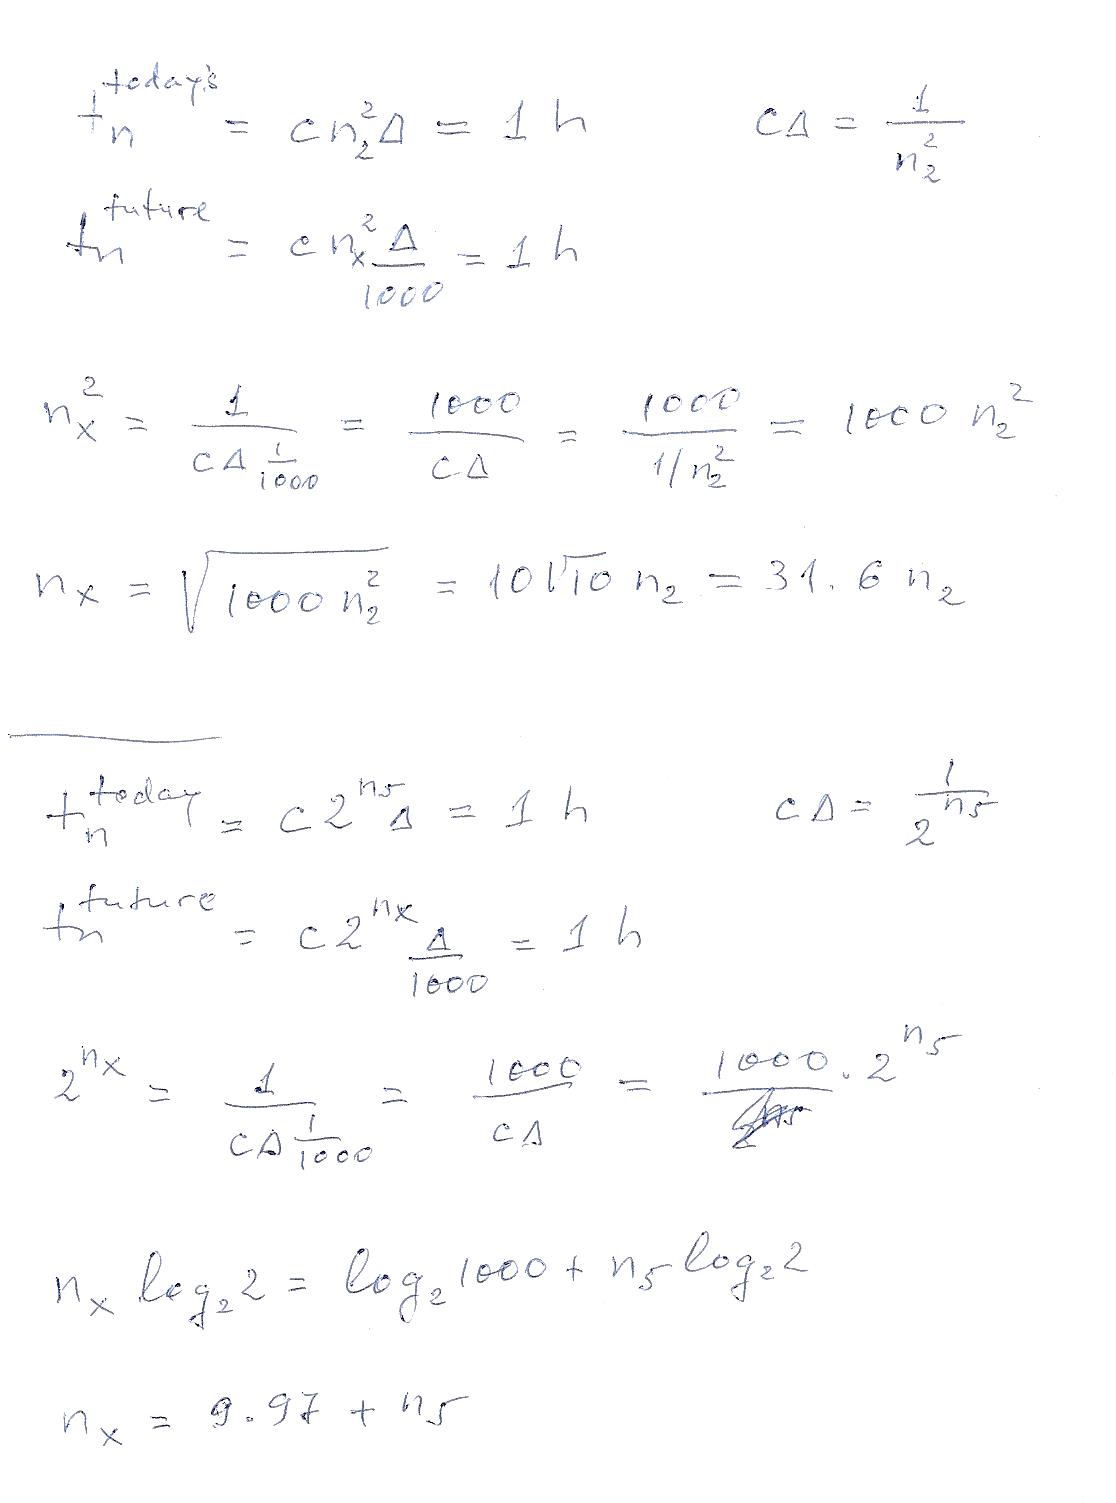 t_n^{today's} = c n_2^2 Δ = 1 h     cΔ = 1/n_2^2
t_n^{future} = c n_x^2 Δ/1000 = 1 h
n_x^2 = 1/(cΔ 1/1000) = 1000/(cΔ) = 1000/(1/n_2^2) = 1000 n_2^2
n_x = √(1000 n_2^2) = 10√10 n_2 = 31.6 n_2
t_n^{today} = c 2^{n_5} Δ = 1 h     cΔ = 1/2^{n_5}
t_n^{future} = c 2^{n_x} Δ/1000 = 1 h
2^{n_x} = 1/(cΔ 1/1000) = 1000/(cΔ) = 1000 · 2^{n_5}
n_x log_2 2 = log_2 1000 + n_5 log_2 2
n_x = 9.97 + n_5